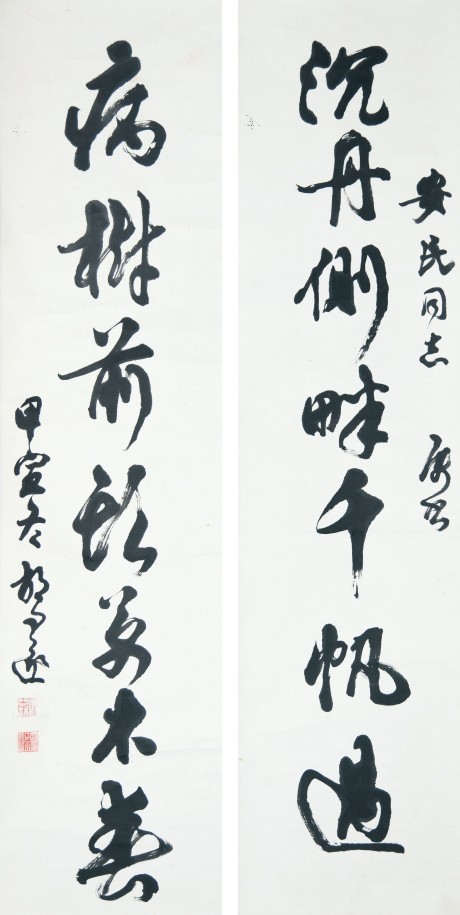 安民同志 属书
沉舟側畔千帆過
病樹前頭萬木春
甲寅冬 胡问遂